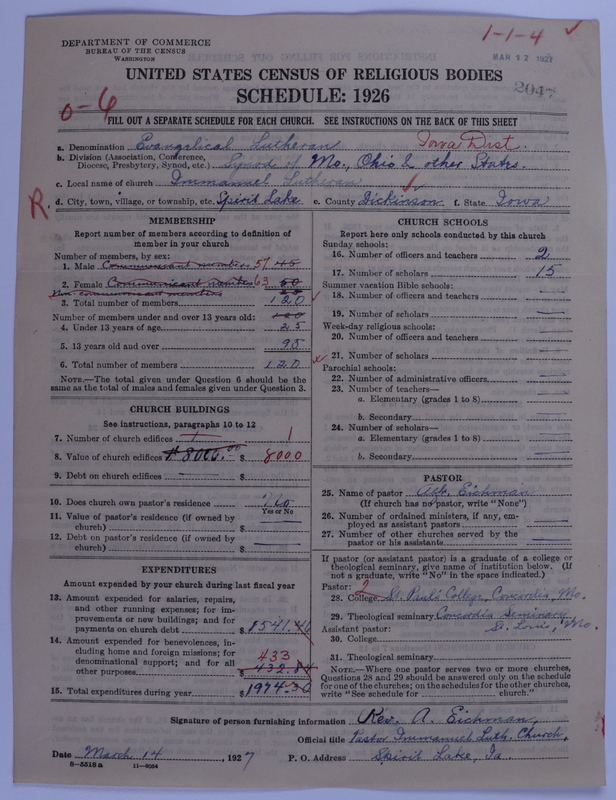 DEPARTMENT OF COMMERCE
BUREAU OF THE CENSUS
WASHINGTON
1-1-4
MAR 12 1927
2047
UNITED STATES CENSUS OF RELIGIOUS BODIES
SCHEDULE: 1926
0-6
FILL OUT A SEPARATE SCHEDULE FOR EACH CHURCH. SEE INSTRUCTIONS ON THE BACK OF THIS SHEET
a. Denomination Evangelical Lutheran Iowa Dist.
b. Division (Association, Conference, Diocese, Presbytery, Synod, etc.) Synod of Mo., Ohio & other States.
c. Local name of church Immanuel Lutheran
R. d. City, town, village, or township, etc. Spirit Lake e. County Dickinson f. State Iowa
MEMBERSHIP
Report number of members according to definition of member in your church
Number of members, by sex:
1. Male Communicant members 57 45
2. Female Communicant members 63 50
Non communicant members
3. Total number of members 120
Number of members under and over 13 years old:
4. Under 13 years of age 25
5. 13 years old and over 95
6. Total number of members 120
NOTE.—The total given under Question 6 should be the same as the total of males and females given under Question 3.
CHURCH BUILDINGS
See instructions, paragraphs 10 to 12
7. Number of church edifices 1 1
8. Value of church edifices $8000.00 $ 8000
9. Debt on church edifices $
10. Does church own pastor's residence no
Yes or No
11. Value of pastor's residence (if owned by church) $
12. Debt on pastor's residence (if owned by church) $
EXPENDITURES
Amount expended by your church during last fiscal year
13. Amount expended for salaries, repairs, and other running expenses; for improvements or new buildings; and for payments on church debt $ 1541.46
14. Amount expended for benevolences, including home and foreign missions; for denominational support; and for all other purposes 433 $ 432.84
15. Total expenditures during year $ 1974.30
CHURCH SCHOOLS
Report here only schools conducted by this church
Sunday schools:
16. Number of officers and teachers 2
17. Number of scholars 15
Summer vacation Bible schools:
18. Number of officers and teachers
19. Number of scholars
Week-day religious schools:
20. Number of officers and teachers
21. Number of scholars
Parochial schools:
22. Number of administrative officers
23. Number of teachers—
a. Elementary (grades 1 to 8)
b. Secondary
24. Number of scholars—
a. Elementary (grades 1 to 8)
b. Secondary
PASTOR
25. Name of pastor Eichman
(If church has no pastor, write "None")
26. Number of ordained ministers, if any, employed as assistant pastors
27. Number of other churches served by the pastor or his assistants
If pastor (or assistant pastor) is a graduate of a college or theological seminary, give name of institution below. (If not a graduate, write "No" in the space indicated.)
Pastor: 2
28. College St. Paul's College, Concordia, Mo.
29. Theological seminary Concordia Seminary
Assistant pastor: St. Louis, Mo.
30. College
31. Theological seminary
NOTE.—Where one pastor serves two or more churches, Questions 28 and 29 should be answered only on the schedule for one of the churches; on the schedules for the other churches, write "See schedule for church."
Signature of person furnishing information Rev. A. Eichman,
Official title Pastor Immanuel Luth. Church,
Date March 14, 1927 P. O. Address Spirit Lake, Ia.
8-5518 a 11-9034